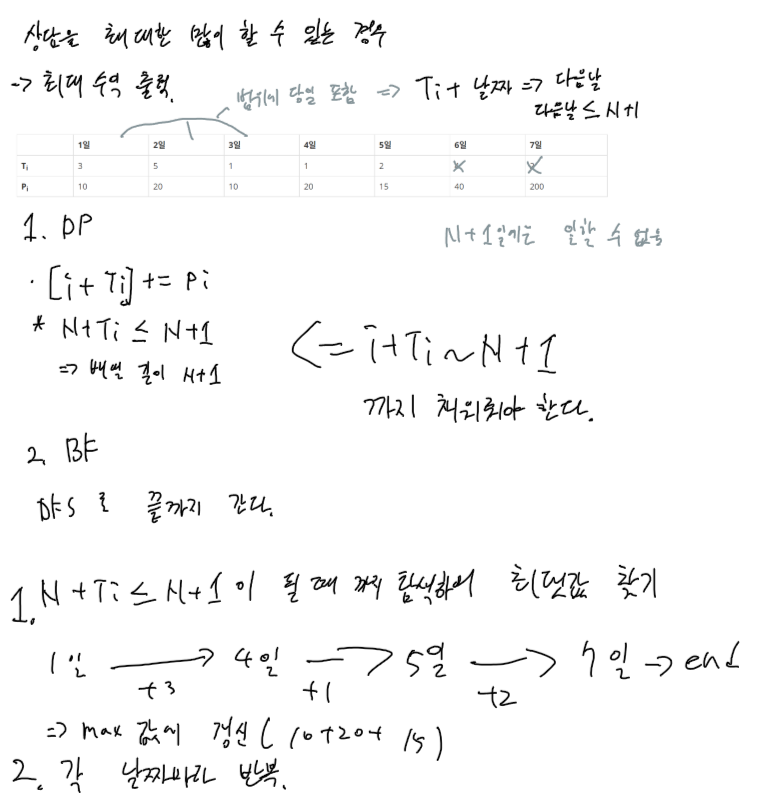 상담을 최대한 많이 할 수 있는 경우
-> 최대 수익 출력.
범위에 당일 포함 => Ti + 날짜 => 다음날
다음날 ≤ N+1
1일 2일 3일 4일 5일 6일 7일
Ti 3 5 1 1 2
Pi 10 20 10 20 15 40 200
N+1일에는 일할 수 없음
1. DP
· [i + Ti] += Pi
* N+Ti ≤ N+1
=> 배열 길이 N+1
<= i+Ti ~ N+1
까지 채워줘야 한다.
2. BF
DFS 로 끝까지 간다.
1. N+Ti ≤ N+1 이 될 때 까지 탐색하며 최댓값 찾기
1일 -> 4일 -> 5일 -> 7일 -> end
+3 +1 +2
=> max 값에 갱신 ( 10+20+ 15)
2. 각 날짜마다 반복.